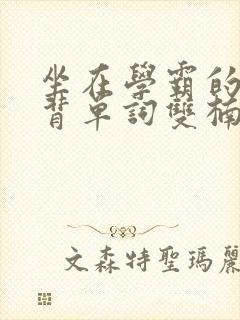 坐在學霸的
背單詞雙楠
文森特聖瑪麗